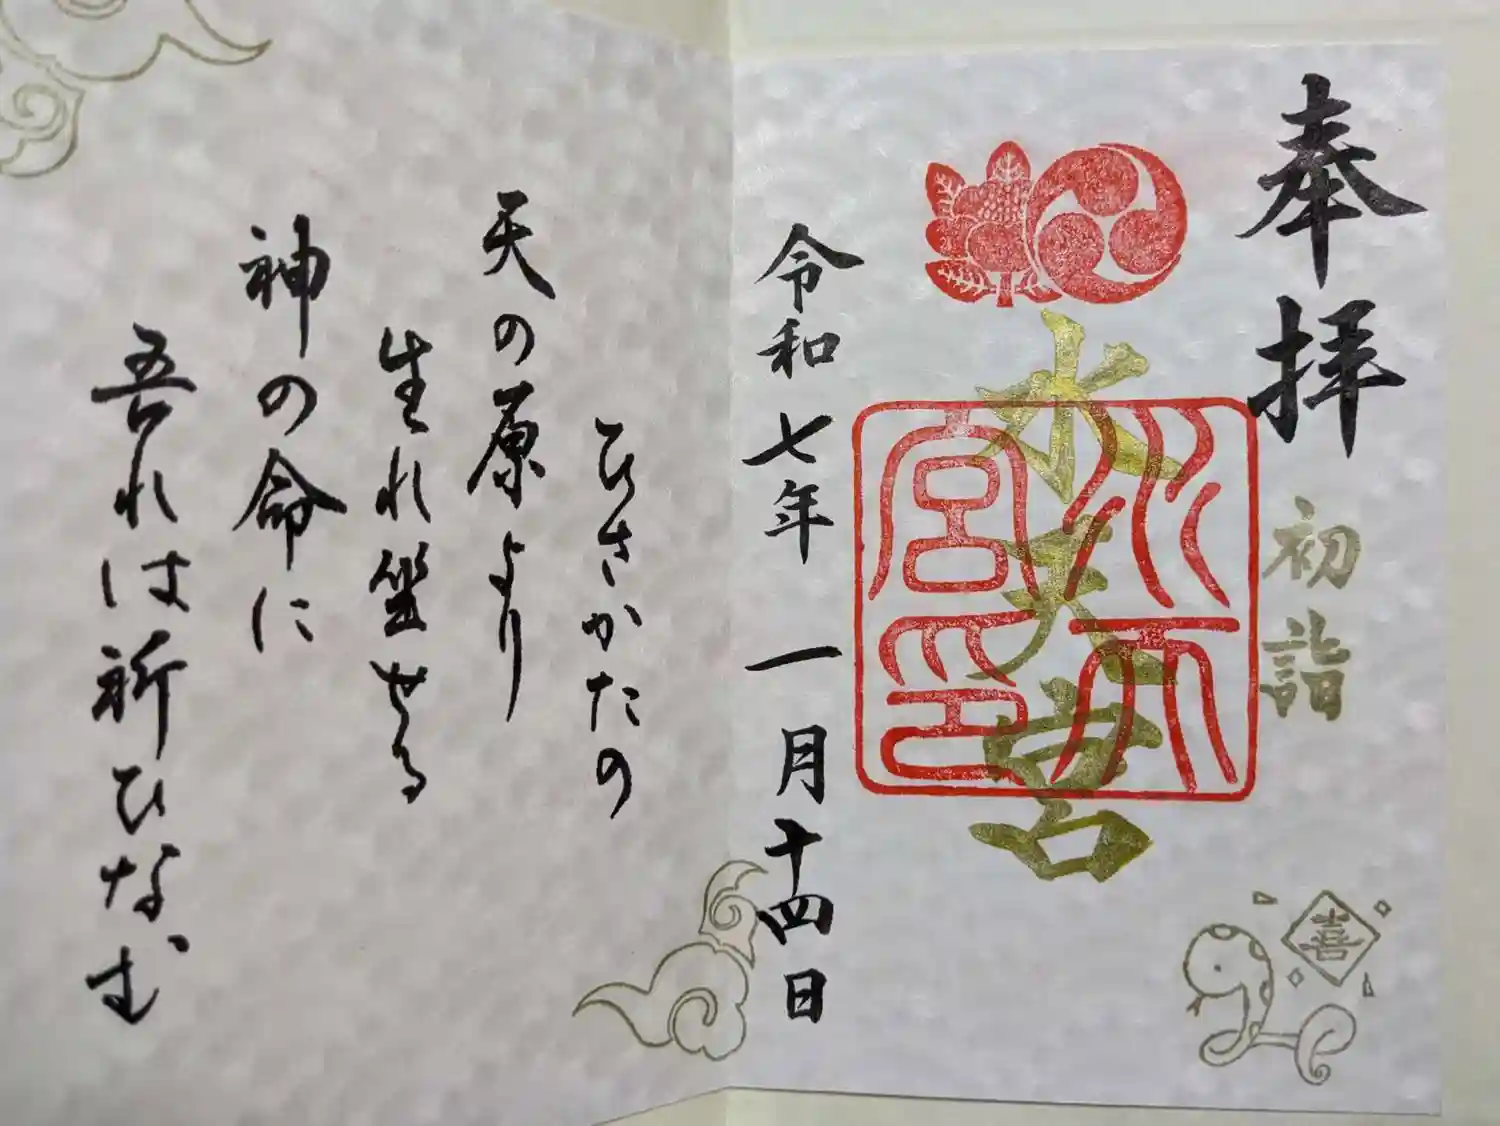 奉拝
初詣
喜
水天宮
水天宮印
令和七年 一月十四日
ひさかたの
天の原より
生れ坐せる
神の命に
吾れは祈ひなむ